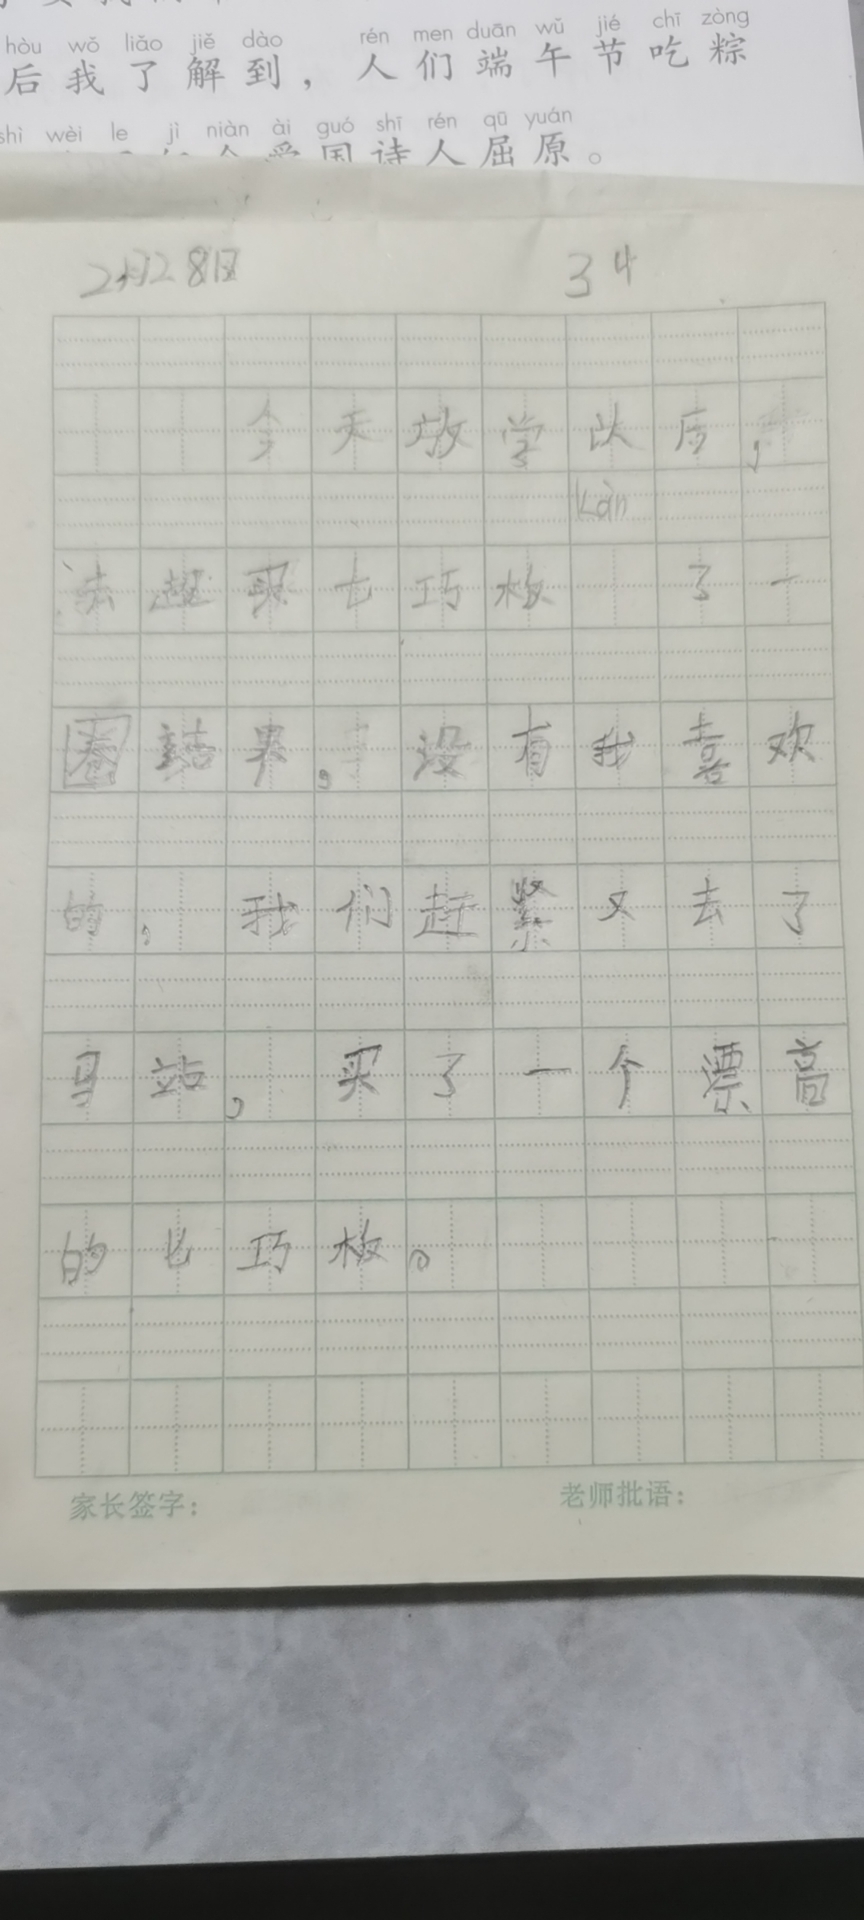 hòu wǒ liǎo jiě dào rén men duān wǔ jié chī zòng
后我了解到，人们端午节吃粽
shì wèi le jì niàn ài guó shī rén qū yuán
爱国诗人屈原。
2月28日 34
今天放学以后，
kàn
去超买七巧板 了一
圈结果，没有我喜欢
的，我们赶紧又去了
马站，买了一个漂亮
的七巧板。
家长签字： 老师批语：